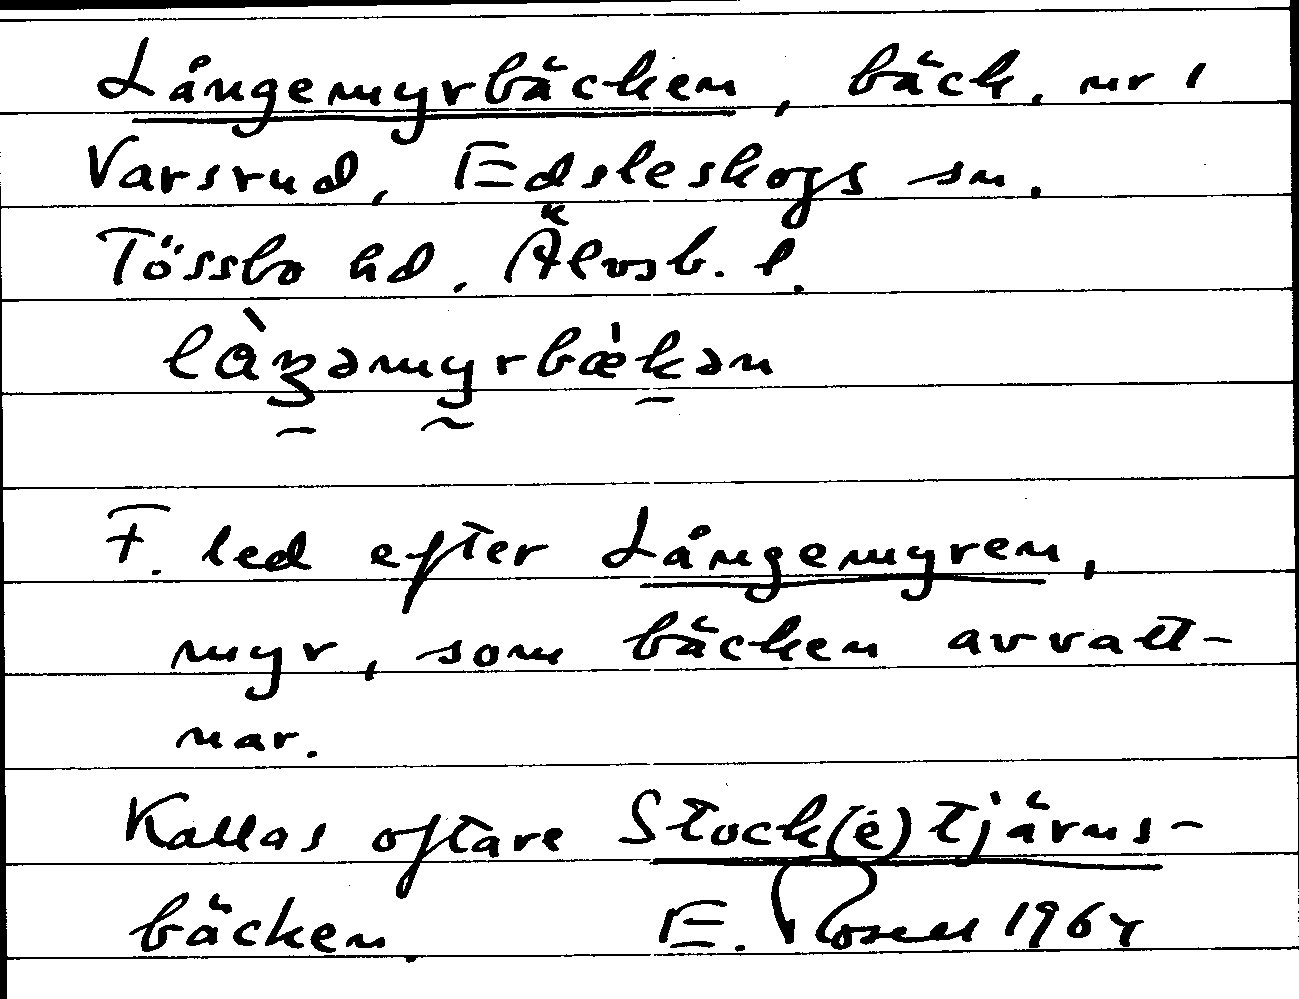 Långemyrbäcken, bäck, nr 1
Varsrud, Edsleskogs sn.
Tössbo hd, Älvsb. l.
F. led efter Långemyren,
myr, som bäcken avvatt-
nar.
Kallas oftare Stock(e)tjärns-
bäcken. E. Rosell 1964